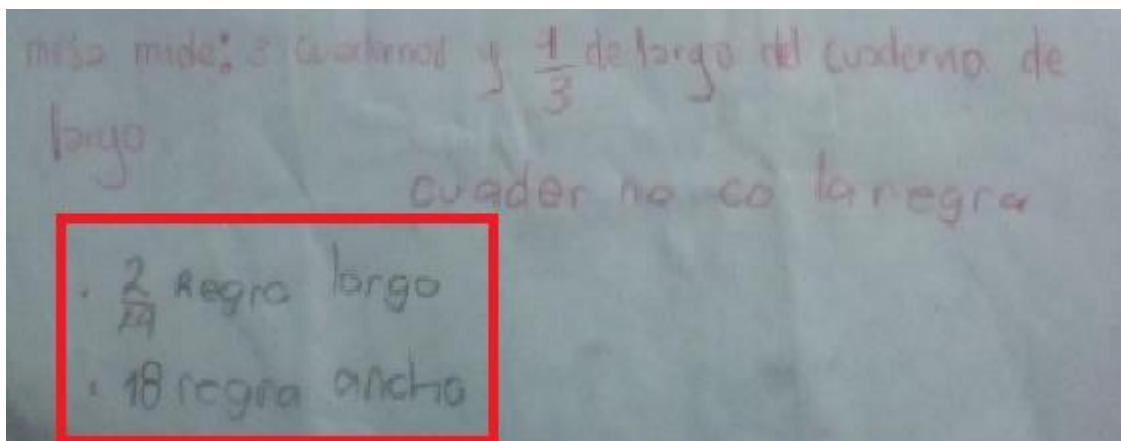 mesa mide: 3 cuadernos y 1/3 de largo del cuaderno de
largo
cuader no co la regra
. 2/ Regra largo
. 18 regra ancho